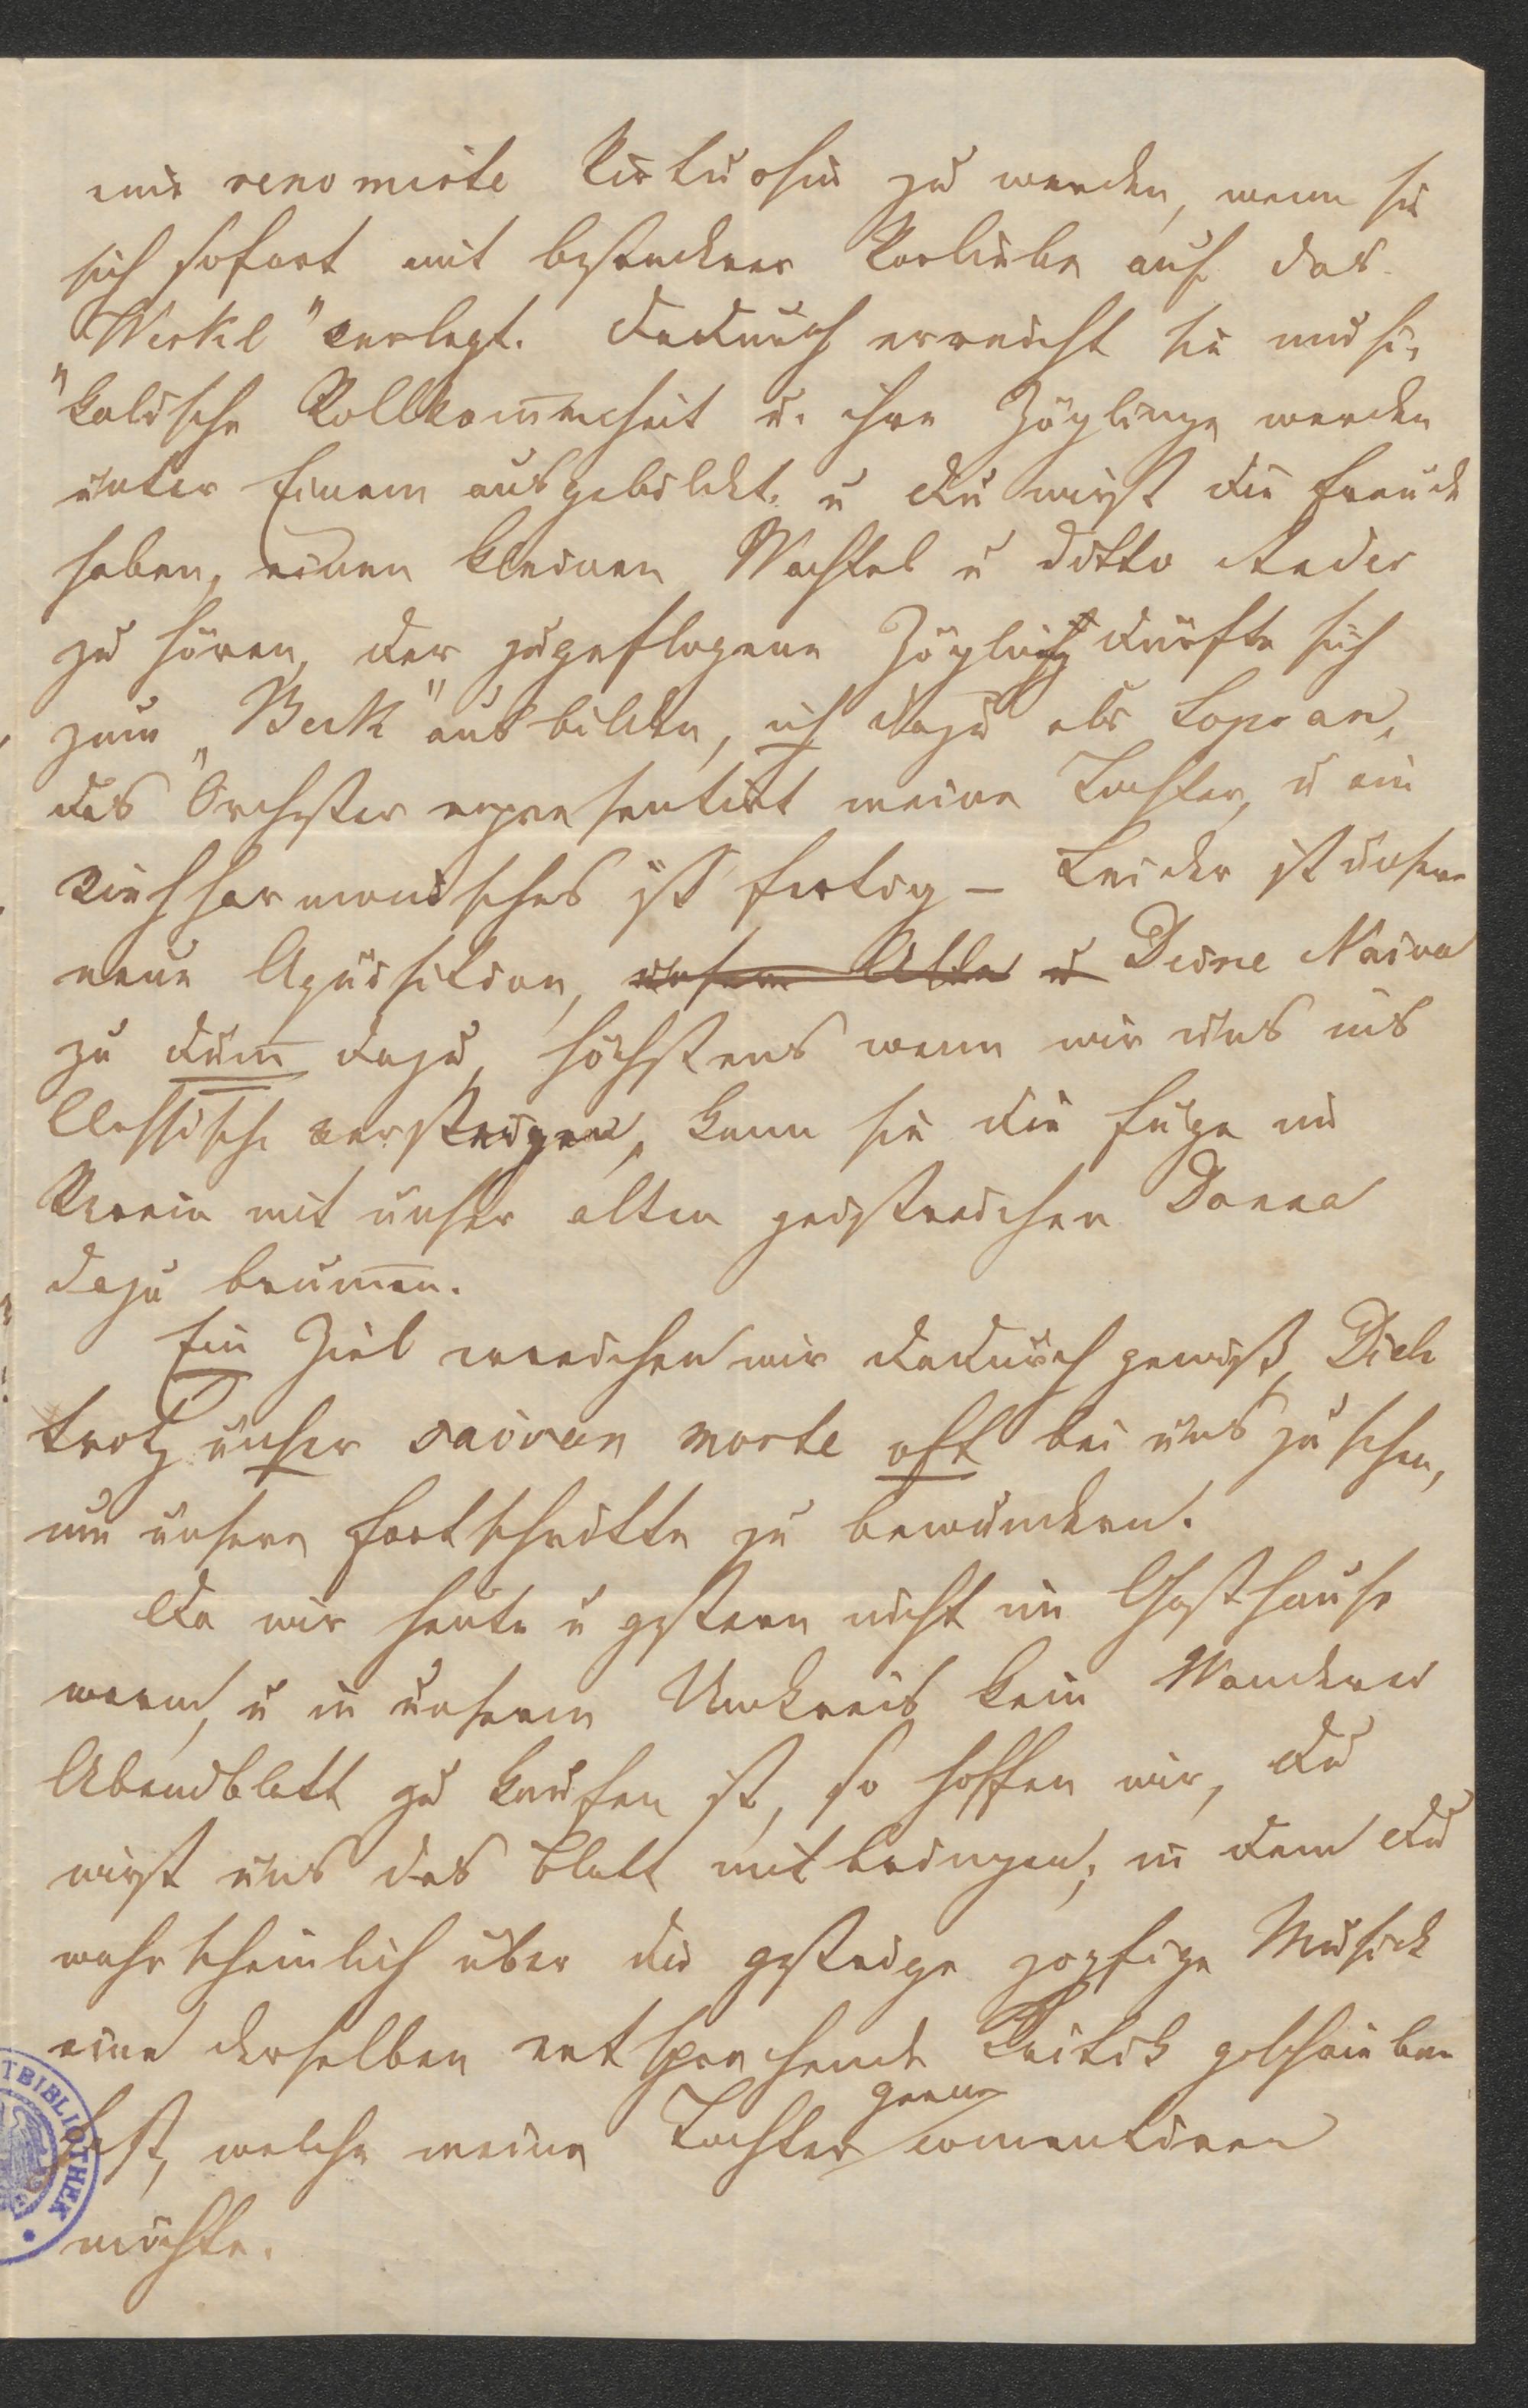 eine renomirte Virtuosin zu werden, wenn sie
sich sofort mit besonderer Vorliebe auf das
"Werkl" verlegt. Dadurch erreicht sie musi-
"kalische Vollkom̅enheit u. ihre Zöglinge werden
unter Einem ausgebildet. u Du wirst die Freude
haben, einen kleinen Wachtel u ditto Ander
zu hören, der zugeflogene Zögling dürfte sich
zum „Beck" ausbilden, ich dazu als Sopran,
das Orchester representirt meine Tochter, u ein
Viehharmonisches ist fertig – Leider ist unsere
neue Aquisition, unsere Alte u Deine Naive
zu dum̅ dazu, höchstens wenn wir uns ins
Classische versteigen, kann sie die Fuge im
Verein mit unser alten geistreichen Donna
dazu brum̅en.
Ein Ziel erreichen wir dadurch gewiß, Dich
trotz unser naiven morte oft bei uns zu sehen,
um unsere Fortschritte zu bewundern.
Da wir heute u gestern nicht im Gasthause
waren, u in unserem Umkreis kein Wanderer
Abendblatt zu kaufen ist, so hoffen wir, Du
wirst uns das Blatt mitbringen, in dem Du
wahrscheinlich über die gestrige zopfige Musick
eine derselben entsprechende Kritik geschrieben
hast, welche meine Tochter gerne comentiren
möchte.
TBIBLIOTHEK